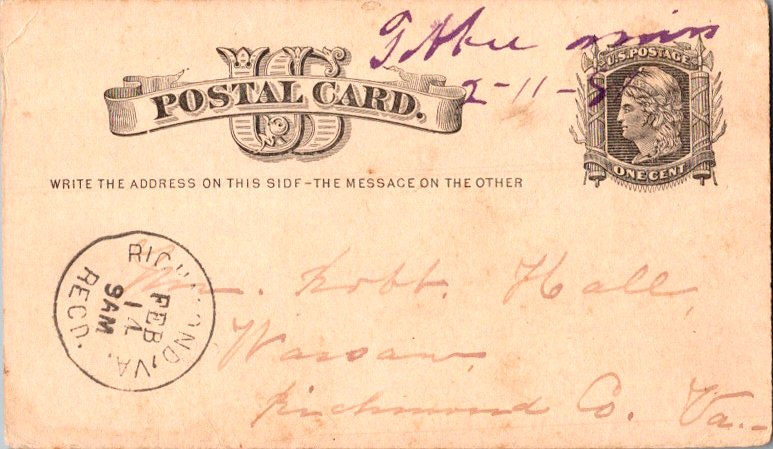 2-11-81
U.S. POSTAGE
US
POSTAL CARD.
ONE CENT
WRITE THE ADDRESS ON THIS SIDE-THE MESSAGE ON THE OTHER
RICHMOND, VA.
FEB
14
9AM
RECD.
Mr. Robt. Hall,
Warsaw
Richmond Co. Va.